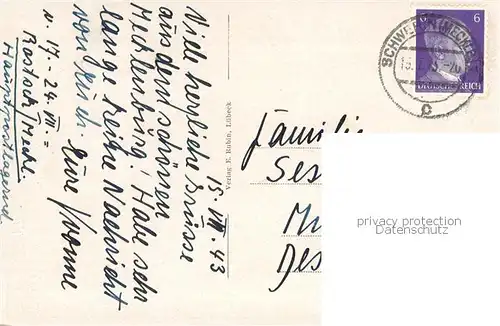 15. VII. 43
Viele herzliche Grüsse
aus dem schönen
Mecklenburg! Habe sehr
lange keine Nachricht
von Euch.
Eure Yvonne
v. 17.-24. VII. =
Rostock/Meckl.
Hauptpostlagernd
Verlag E. Rubin, Lübeck
6 6
DEUTSCHES REICH
SCHWERIN (MECKL)
C
Familie
privacy protection
Datenschutz